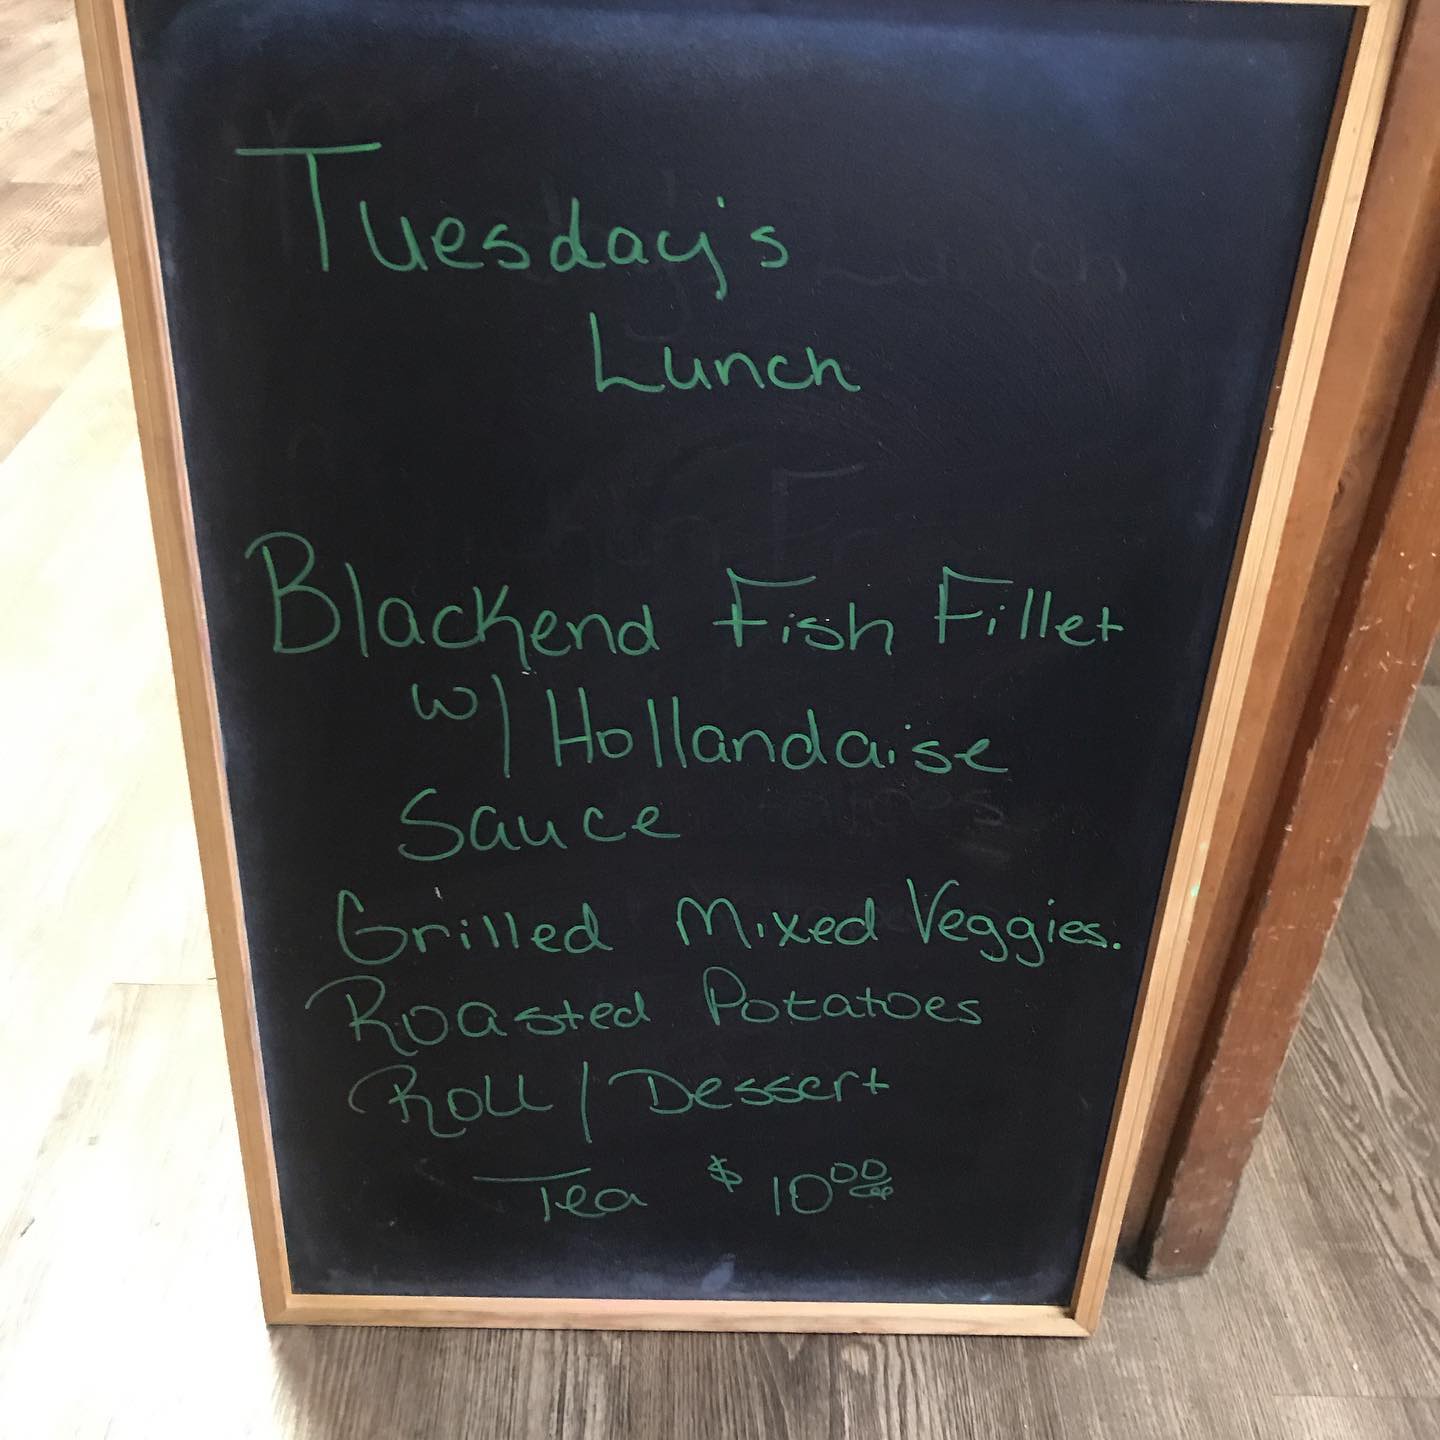 Tuesday's
Lunch
Blackend Fish Fillet
w/ Hollandaise
Sauce
Grilled Mixed Veggies.
Roasted Potatoes
Roll / Dessert
Tea $ 10.00